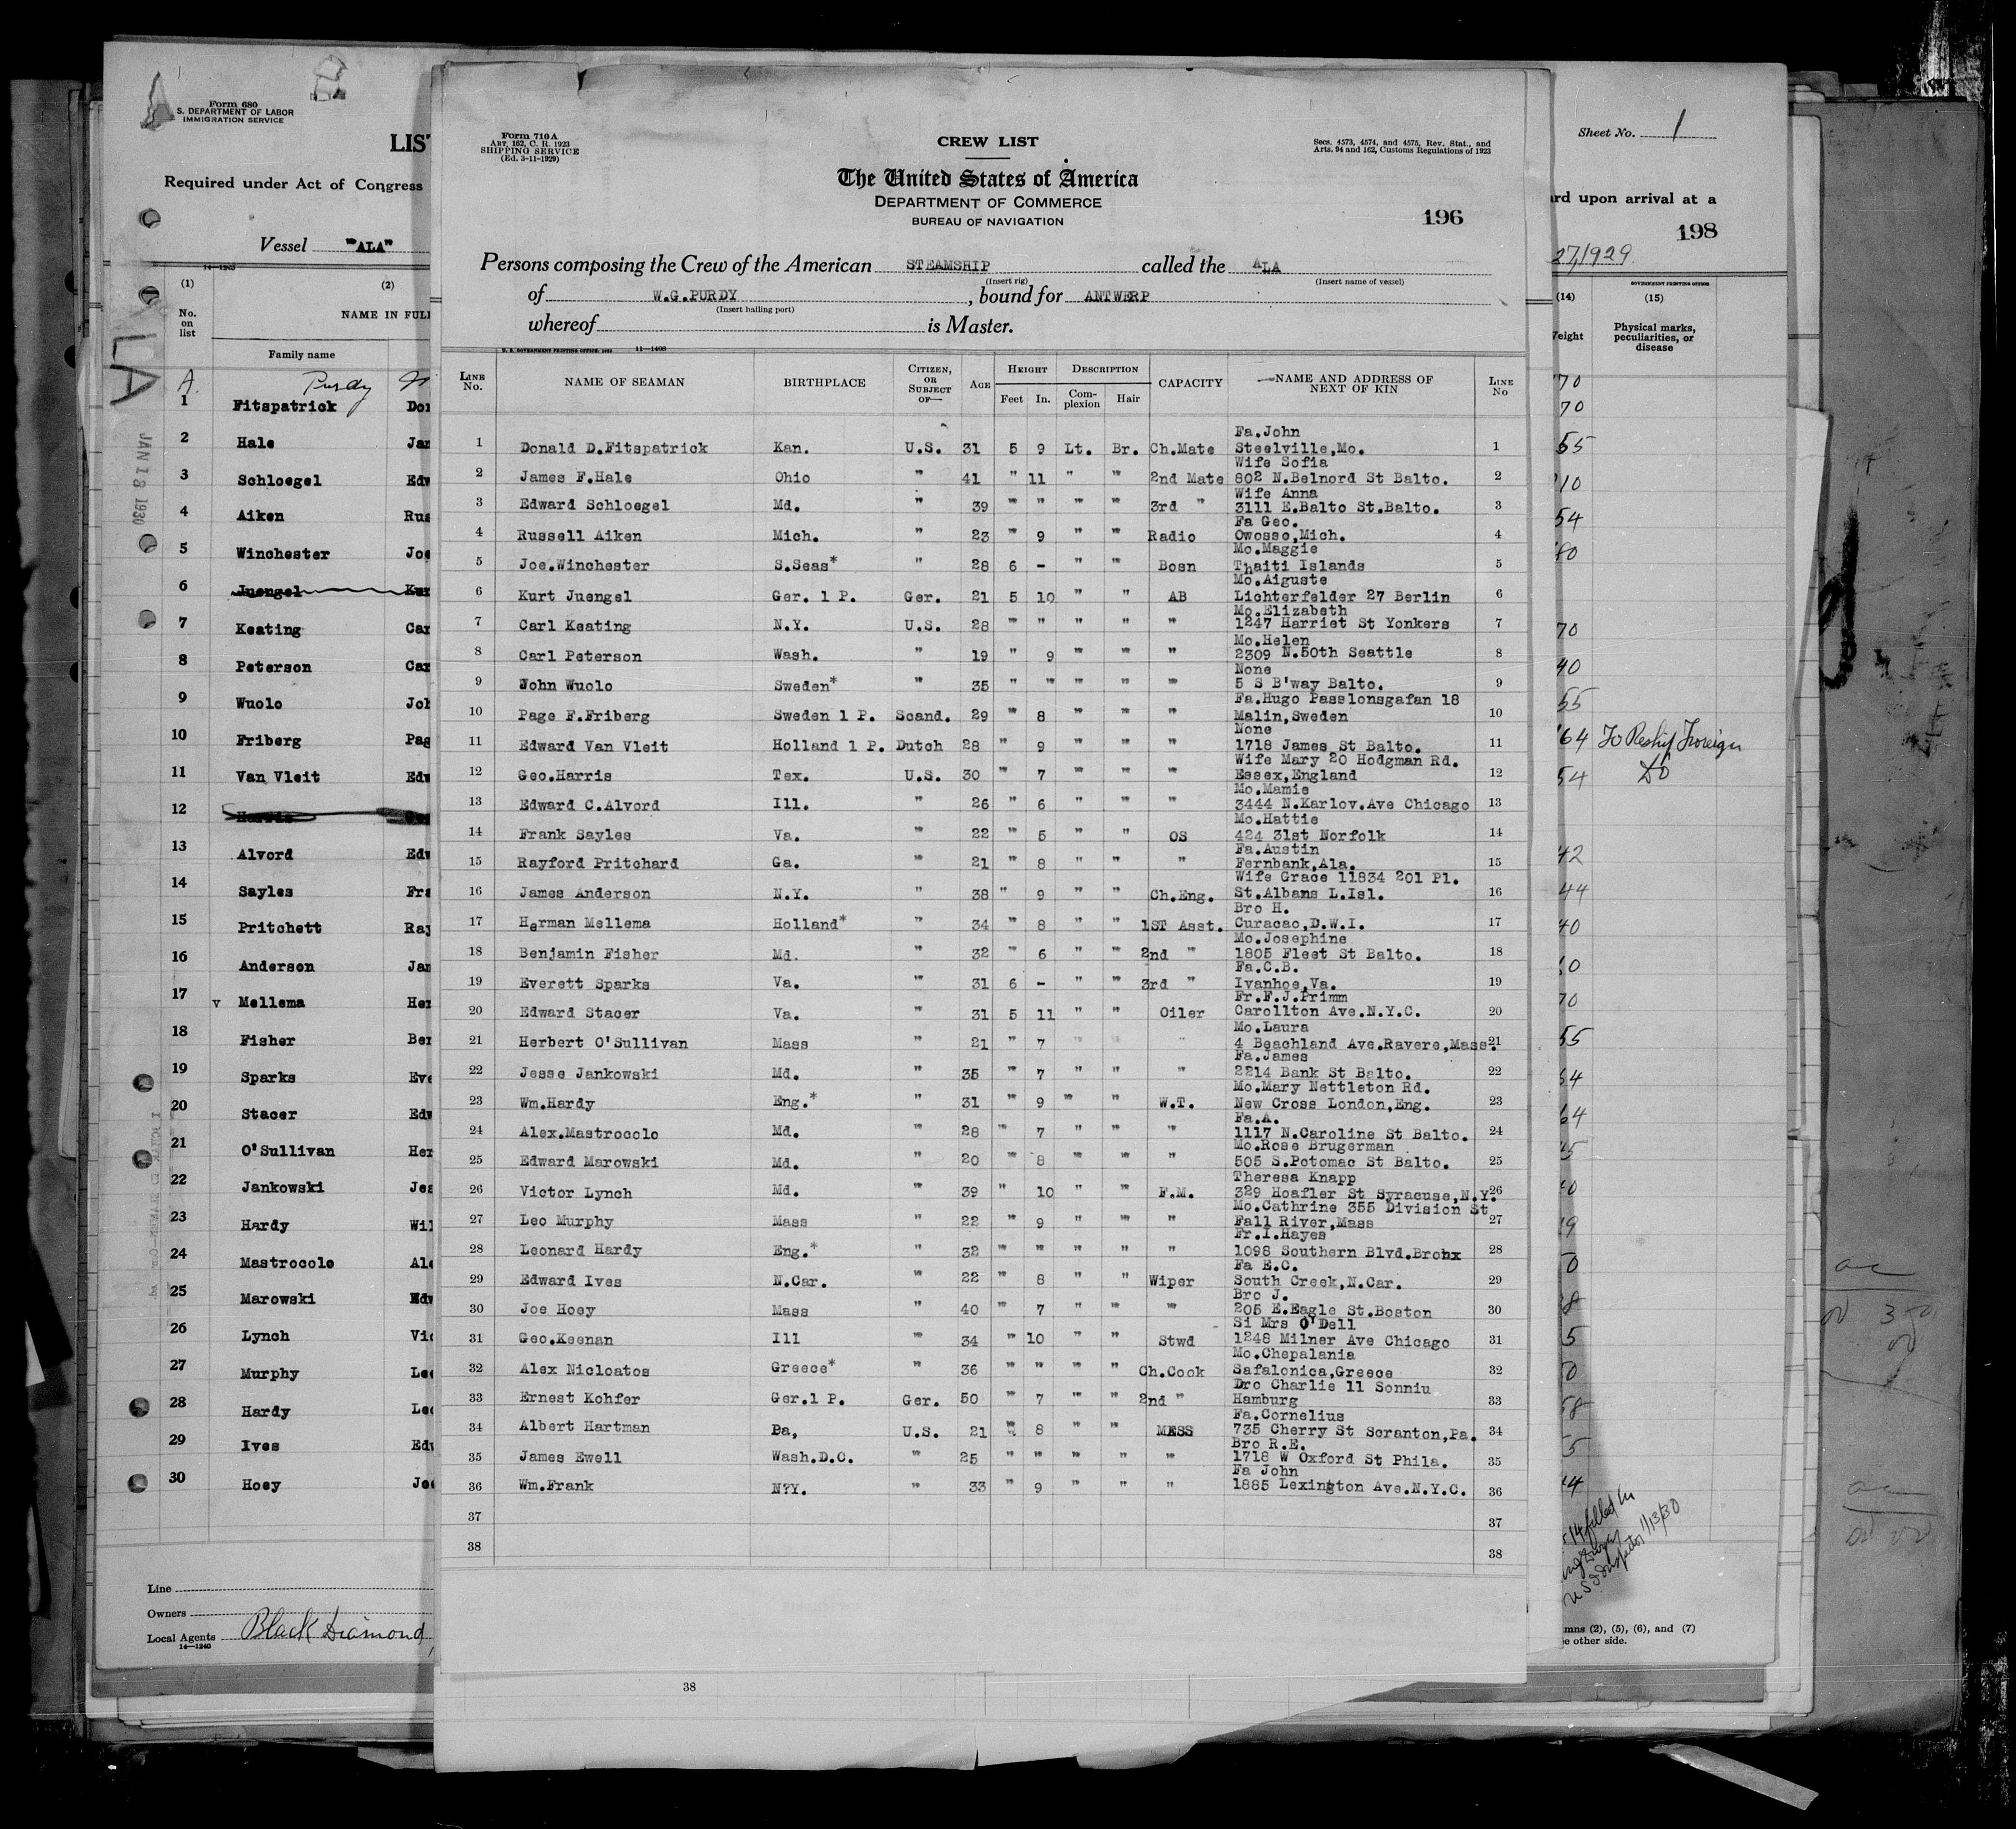 Form 680
S. DEPARTMENT OF LABOR
IMMIGRATION SERVICE
LIS
Required under Act of Congress
Vessel "ALA"
14—1240
(1) (2)
No. on list NAME IN FULL
Family name
A. Purdy
1 Fitspatrick Don
2 Hale Jam
3 Schloegel Edw
4 Aiken Rus
5 Winchester Joe
6 Juengel Kur
7 Keating Car
8 Peterson Car
9 Wuolo Joh
10 Friberg Pag
11 Van Vleit Edw
12
13 Alvord Edw
14 Sayles Fra
15 Pritchett Ray
16 Anderson Jam
17 v Mellema Her
18 Fisher Ben
19 Sparks Eve
20 Stacer Edw
21 O'Sullivan Her
22 Jankowski Jes
23 Hardy Wil
24 Mastrocolo Ale
25 Marowski Edw
26 Lynch Vic
27 Murphy Leo
28 Hardy Leo
29 Ives Edw
30 Hoey Joe
Line
Owners
Local Agents Black Diamond
14—1240
LA
JAN 13 1930
Form 710A
ART. 162, C. R. 1923
SHIPPING SERVICE
(Ed. 3-11-1929)
CREW LIST
Secs. 4573, 4574, and 4575, Rev. Stat., and
Arts. 94 and 162, Customs Regulations of 1923
The United States of America
DEPARTMENT OF COMMERCE
BUREAU OF NAVIGATION
196
Persons composing the Crew of the American STEAMSHIP called the ALA
(Insert rig) (Insert name of vessel)
of W.G.PURDY, bound for ANTWERP
(Insert hailing port)
whereof is Master.
U. S. GOVERNMENT PRINTING OFFICE 11—1408
LINE No. NAME OF SEAMAN BIRTHPLACE CITIZEN, OR SUBJECT OF— AGE HEIGHT DESCRIPTION CAPACITY NAME AND ADDRESS OF NEXT OF KIN LINE No
Feet In. Complexion Hair
Fa.John
1 Donald D.Fitspatrick Kan. U.S. 31 5 9 Lt. Br. Ch.Mate Steelville,Mo. 1
Wife Sofia
2 James F.Hale Ohio " 41 " 11 " " 2nd Mate 802 N.Belnord St Balto. 2
Wife Anna
3 Edward Schloegel Md. " 39 " " " " 3rd " 3111 E.Balto St.Balto. 3
Fa Geo.
4 Russell Aiken Mich. " 23 " 9 " " Radio Owosso,Mich. 4
Mo.Maggie
5 Joe.Winchester S.Seas* " 28 6 - " " Bosn Thaiti Islands 5
Mo.Aiguste
6 Kurt Juengel Ger. 1 P. Ger. 21 5 10 " " AB Lichterfelder 27 Berlin 6
Mo.Elizabeth
7 Carl Keating N.Y. U.S. 28 " " " " " 1247 Harriet St Yonkers 7
Mo.Helen
8 Carl Peterson Wash. " 19 " 9 " " " 2309 N.50th Seattle 8
None
9 John Wuolo Sweden* " 35 " " " " " 5 S B'way Balto. 9
Fa.Hugo Passlonsgafan 18
10 Page F.Friberg Sweden 1 P. Scand. 29 " 8 " " " Malin,Sweden 10
None
11 Edward Van Vleit Holland 1 P. Dutch 28 " 9 " " " 1718 James St Balto. 11
Wife Mary 20 Hodgman Rd.
12 Geo.Harris Tex. U.S. 30 " 7 " " " Essex,England 12
Mo.Mamie
13 Edward C.Alvord Ill. " 26 " 6 " " " 3444 N.Karlov.Ave Chicago 13
Mo.Hattie
14 Frank Sayles Va. " 22 " 5 " " OS 424 31st Norfolk 14
Fa.Austin
15 Rayford Pritchard Ga. " 21 " 8 " " " Fernbank,Ala. 15
Wife Grace 11834 201 Pl.
16 James Anderson N.Y. " 38 " 9 " " Ch.Eng. St.Albans L.Isl. 16
Bro H.
17 Herman Mellema Holland* " 34 " 8 " " 1ST Asst. Curacao,D.W.I. 17
Mo.Josephine
18 Benjamin Fisher Md. " 32 " 6 " " 2nd " 1805 Fleet St Balto. 18
Fa.C.B.
19 Everett Sparks Va. " 31 6 - " " 3rd " Ivanhoe,Va. 19
Fr.F.J.Primm
20 Edward Stacer Va. " 31 5 11 " " Oiler Carollton Ave.N.Y.C. 20
Mo.Laura
21 Herbert O'Sullivan Mass " 21 " 7 " " " 4 Beachland Ave.Ravere,Mass. 21
Fa.James
22 Jesse Jankowski Md. " 35 " 7 " " " 2214 Bank St Balto. 22
Mo.Mary Nettleton Rd.
23 Wm.Hardy Eng.* " 31 " 9 " " W.T. New Cross London,Eng. 23
Fa.A.
24 Alex.Mastrocolo Md. " 28 " 7 " " " 1117 N.Caroline St Balto. 24
Mo.Rose Brugerman
25 Edward Marowski Md. " 20 " 8 " " " 505 S.Potomac St Balto. 25
Theresa Knapp
26 Victor Lynch Md. " 39 " 10 " " F.M. 329 Hoafler St Syracuse,N.Y. 26
Mo.Cathrine 355 Division St
27 Leo Murphy Mass " 22 " 9 " " " Fall River,Mass 27
Fr.I.Hayes
28 Leonard Hardy Eng.* " 32 " " " " " 1098 Southern Blvd.Bronx 28
Fa E.C.
29 Edward Ives N.Car. " 22 " 8 " " Wiper South Creek,N.Car. 29
Bro J.
30 Joe Hoey Mass " 40 " 7 " " " 205 E.Eagle St.Boston 30
Si Mrs O'Dell
31 Geo.Keenan Ill " 34 " 10 " " Stwd 1248 Milner Ave Chicago 31
Mo.Chepalania
32 Alex Nicloatos Greece* " 36 " " " " Ch.Cook Safalonica,Greece 32
Bro Charlie 11 Sonniu
33 Ernest Kohfer Ger.1 P. Ger. 50 " 7 " " 2nd " Hamburg 33
Fa.Cornelius
34 Albert Hartman Pa, U.S. 21 " 8 " " MESS 735 Cherry St Scranton,Pa. 34
Bro R.E.
35 James Ewell Wash.D.C. " 25 " " " " " 1718 W Oxford St Phila. 35
Fa John
36 Wm.Frank N?Y. " 33 " 9 " " " 1885 Lexington Ave.N.Y.C. 36
37 37
38 38
38
Sheet No. 1
rd upon arrival at a
198
27,1929
GOVERNMENT PRINTING OFFICE
(14) (15)
Weight Physical marks, peculiarities, or disease
70
70
55
10
54
80
70
40
55
64 To Reship Foreign
54 Do
42
44
40
60
70
55
54
64
45
40
19
0
8
5
0
58
5
44
14 filled in
Inspector 1/13/30
mns (2), (5), (6), and (7)
e other side.